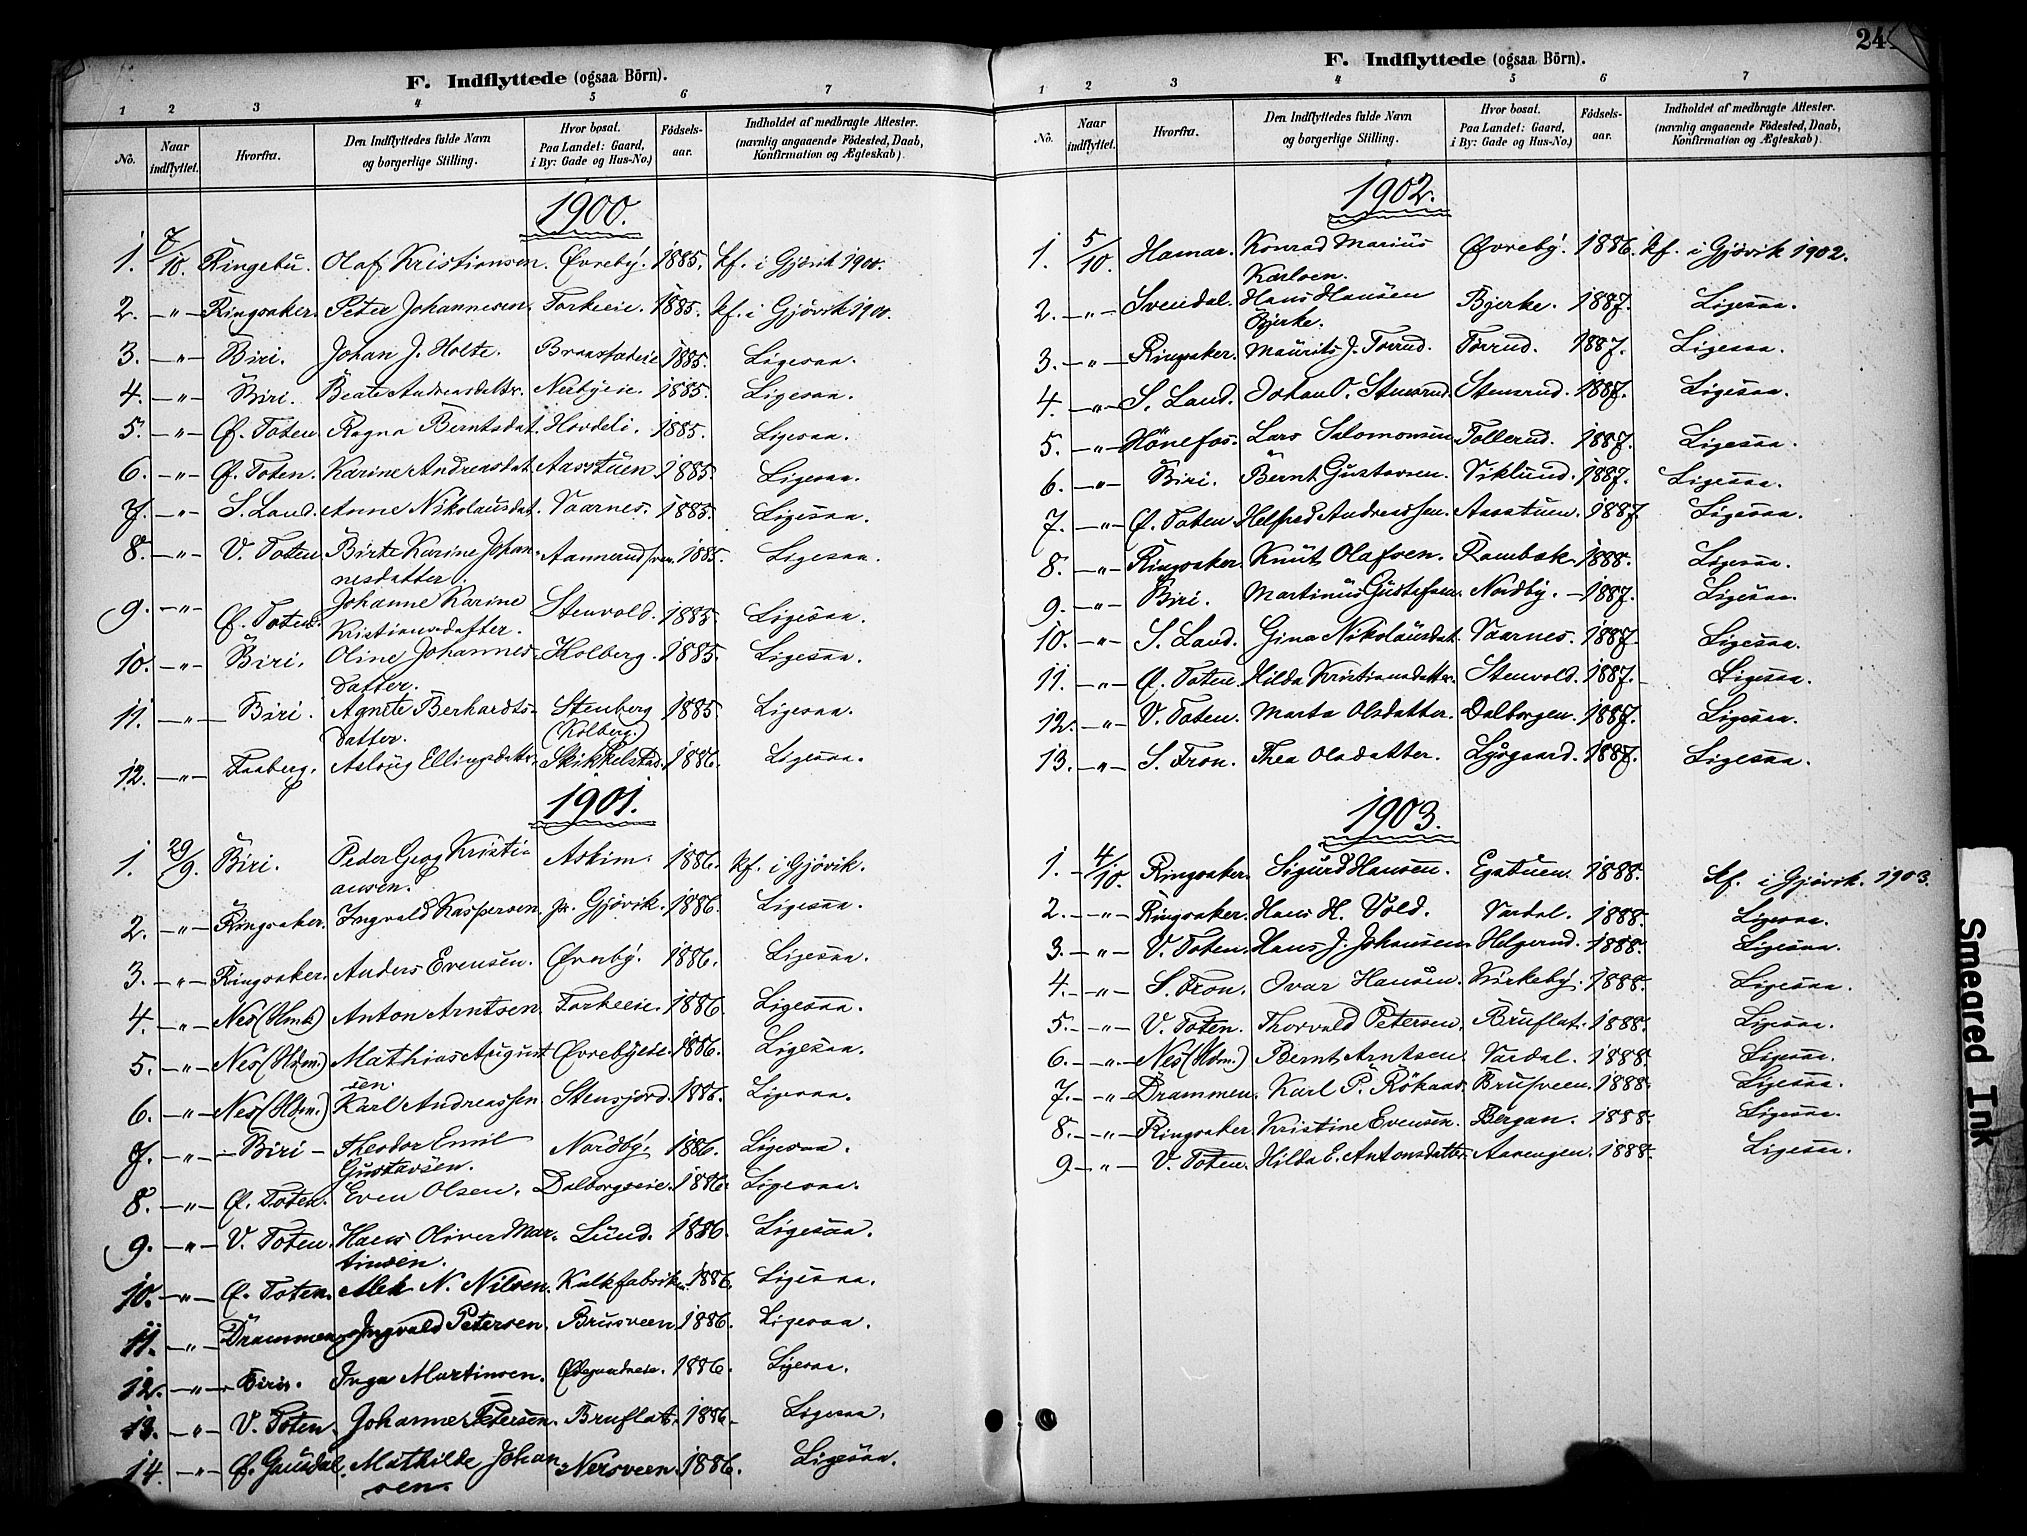 F. Indflyttede (ogsaa Börn).
1 2 3 4 5 6 7
No. Naar indflyttet. Hvorfra. Den Indflyttedes fulde Navn og borgerlige Stilling. Hvor bosat. Paa Landet: Gaard, i By: Gade og Hus-No.) Födsels-aar. Indholdet af medbragte Attester. (navnlig angaaende Födested, Daab, Konfirmation og Ægteskab).
1900.
1. 7/10. Ringebu. Olaf Kristiansen. Øvreby. 1885. kf. i Gjövik 1900.
2. -"- Ringsaker. Peter Johannesen. Forkeeie. 1885. kf. i Gjövik 1900.
3. -"- Biri. Johan J. Holte. Braastadeie 1885. Ligesaa.
4. -"- Biri. Beate Andreasdattr. Nerbyeie. 1885. Ligesaa.
5. -"- Ø. Toten Ragna Berntsdat. Hovdeli. 1885. Ligesaa.
6. -"- Ø. Toten. Karine Andreasdat. Aasstuen. 1885. Ligesaa.
7. -"- S. Land. Anne Nikolausdat. Vaarnes. 1885. Ligesaa.
8. -"- V. Toten Birte Karine Johan- 1885. Ligesaa.
nesdatter.
9. -"- Ø. Toten. Johanne Karine Stenvold. 1885. Ligesaa.
Kristiansdatter.
10. -"- Biri. Oline Johannes- Holberg. 1885. Ligesaa.
datter.
11. -"- Biri. Agnete Berhardts- Stenberg 1885. Ligesaa.
datter. (Kolberg.)
12. -"- Faaberg. Aslaug Ellingsdattr. Skikkelstad. 1886. Ligesaa.
1901.
1. 29/9. Biri. Peder Georg Kristi- Askim. 1886. kf. i Gjövik.
ansen.
2. -"- Ringsaker. Ingvald Kaspersen. pr. Gjövik. 1886. Ligesaa.
3. -"- Ringsaker. Anders Evensen. Øvreby. 1886. Ligesaa.
4. -"- Nes (Hmk) Anton Arntsen. Forkeeie. 1886. Ligesaa.
5. -"- Nes (Hdm.) Mathias August Øvrebyeie. 1886. Ligesaa.
sen.
6. -"- Nes (Hdm.) Karl Andreassen Stensjord. 1886. Ligesaa.
7. -"- Biri - Theodor Emil Nordby. 1886. Ligesaa.
Gustavsen.
8. -"- Ø. Toten. Even Olsen. Dalborgseie. 1886. Ligesaa.
9. -"- V. Toten. Hans Oliver Mar- Lund. 1886. Ligesaa.
tinsen.
10. -"- Ø. Toten. N. Nilsen. Kalkfabrik. 1886. Ligesaa.
11. -"- Drammen. Ingvald Petersen. Brusveen. 1886. Ligesaa.
12. -"- Biri. Inga Martinsen. Ødegaardseie. 1886. Ligesaa.
13. -"- V. Toten. Johanne Petersen. Bruflat. 1886. Ligesaa.
14. -"- Ø. Gausdal. Mathilde Johan- Nersveen. 1886. Ligesaa.
sen.
24
F. Indflyttede (ogsaa Börn).
1 2 3 4 5 6 7
No. Naar indflyttet. Hvorfra. Den Indflyttedes fulde Navn og borgerlige Stilling. Hvor bosat. Paa Landet: Gaard, i By: Gade og Hus-No.) Födsels-aar. Indholdet af medbragte Attester. (navnlig angaaende Födested, Daab, Konfirmation og Ægteskab).
1902.
1. 5/10. Hamar. Konrad Marius Øvreby. 1886. kf. i Gjövik 1902.
Karlsen.
2. -"- Svendal. Hans Hansen Bjerke. 1887. Ligesaa.
Bjerke.
3. -"- Ringsaker. Maurits J. Torrud. Torrud. 1887. Ligesaa.
4. -"- S. Land. Johan O. Stensrud Stensrud. 1887. Ligesaa.
5. -"- Hönefos. Lars Salomonsen Tollerud. 1887. Ligesaa.
6. -"- Biri. Bernt Gustavsen. Viklund. 1887. Ligesaa.
7. -"- Ø. Toten Helfred Andreassen. Aasstuen. 1887. Ligesaa.
8. -"- Ringsaker. Knut Olafsen. Rambæk. 1888. Ligesaa.
9. -"- Biri. Martinius Gustafsen. Nordby. - 1887. Ligesaa.
10. -"- S. Land. Gina Nikolausdat. Vaarnes. 1887. Ligesaa.
11. -"- Ø. Toten Hilda Kristiansdatter. Stenvold. 1887. Ligesaa.
12. -"- V. Toten. Marta Olsdatter. Dalborgen. 1887. Ligesaa.
13. -"- S. Fron. Thea Olsdatter. Lysgaard. 1887. Ligesaa.
1903.
1. 4/10. Ringsaker. Sigurd Hansen. Egstuen. 1888. kf. i Gjövik. 1903.
2. -"- Ringsaker. Hans H. Vold. Vardal. 1888. Ligesaa.
3. -"- V. Toten. Hans J. Johansen. Helgerud. 1888. Ligesaa.
4. -"- S. Fron. Ivar Hansen. Kirkeby. 1888. Ligesaa.
5. -"- V. Toten. Thorvald Petersen. Bruflat. 1888. Ligesaa.
6. -"- Nes (Hdm.) Bernt Arntsen. Vardal. 1888. Ligesaa.
7. -"- Drammen. Karl P. Brusveen. 1888. Ligesaa.
8. -"- Ringsaker. Kristine Evensen. Bergan. 1888. Ligesaa.
9 -"- V. Toten. Hilda E. Antonsdatter. Aarengen. 1888. Ligesaa.
Smeared Ink